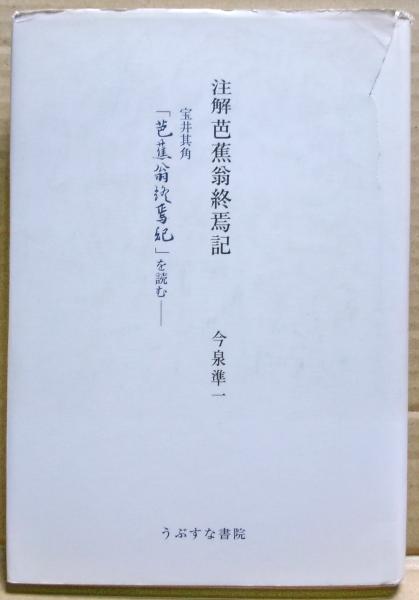 注解芭蕉翁終焉記
宝井其角
「芭蕉翁終焉記」を読む──
今泉準一
うぶすな書院